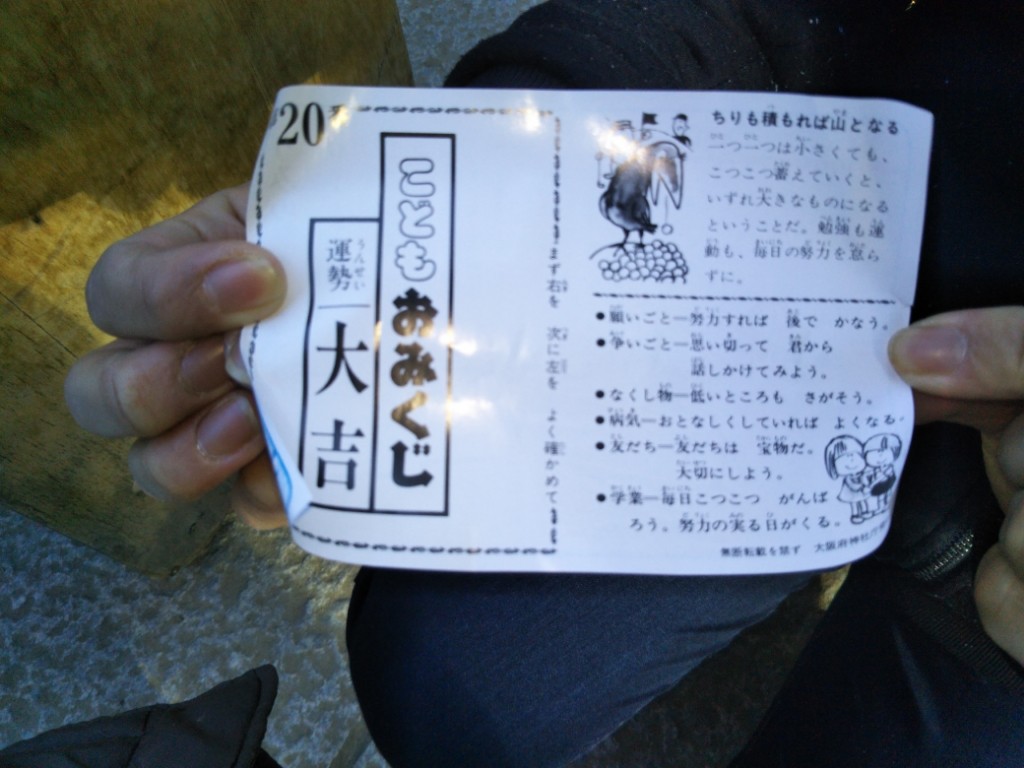 20
こども おみくじ
運勢 大吉
うんせい
まず右を 次に左を よく確かめて
ちりも積もれば山となる
一つ一つは小さくても、
こつこつ蓄えていくと、
いずれ大きなものになる
ということだ。勉強も運
動も、毎日の努力を怠ら
ずに。
●願いごと―努力すれば 後で かなう。
●争いごと―思い切って 君から
話しかけてみよう。
●なくし物―低いところも さがそう。
●病気―おとなしくしていれば よくなる。
●友だち―友だちは 宝物だ。
大切にしよう。
●学業―毎日こつこつ がんば
ろう。努力の実る日がくる。
無断転載を禁ず 大阪府神社庁